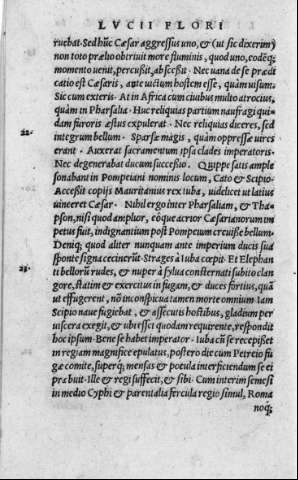 LVCII FLORI
ruebat. Sed hũc Cæsar aggressus uno, & (ut sic dixerim)
non toto prælio obtriuit more fluminis, quod uno, eodẽq;
momento uenit, percußit, abscessit. Nec uana de se prædi
catio est Cæsaris, ante uictum hostem esse, quàm uisum.
Sic cum exteris. At in Africa cum ciuibus multo atrocius,
quàm in Pharsalia. Huc reliquias partium naufragi qui-
dam furoris æstus expulerat. Nec reliquias diceres, sed
22. integrum bellum. Sparsæ magis, quàm oppressæ uires
erant. Auxerat sacramentum ipsa clades imperatoris.
Nec degenerabat ducum successio. Quippe satis ample
sonabant in Pompeiani nominis locum, Cato & Scipio.
Accessit copijs Mauritaniæ rex Iuba, uidelicet ut latius
uinceret Cæsar. Nihil ergo inter Pharsaliam, & Tha-
pson, nisi quod amplior, eoque acrior Cæsarianorum im
petus fuit, indignantium post Pompeium creuisse bellum.
Deniq; quod aliter nunquam ante imperium ducis sua
sponte signa cecinerũt. Strages à Iuba cœpit. Et Elephan
23. ti bellorũ rudes, & nuper à sylua consternati subito clan
gore, statim & exercitus in fugam, & duces fortius, quàm
ut effugerent, nõ inconspicua tamen morte omnium. Iam
Scipio naue fugiebat, & assecutis hostibus, gladium per
uiscera exegit, & ubi esset quodam requirente, respondit
hoc ipsum. Bene se habet imperator. Iuba cũ se recepisset
in regiam magnifice epulatus, postero die cum Petreio fu
gæ comite, superq; mensas & pocula interficiendum se ei
præbuit. Ille & regi suffecit, & sibi. Cum interim semesi
in medio Cyphi & parentalia fercula regio simul, Roma
noq;